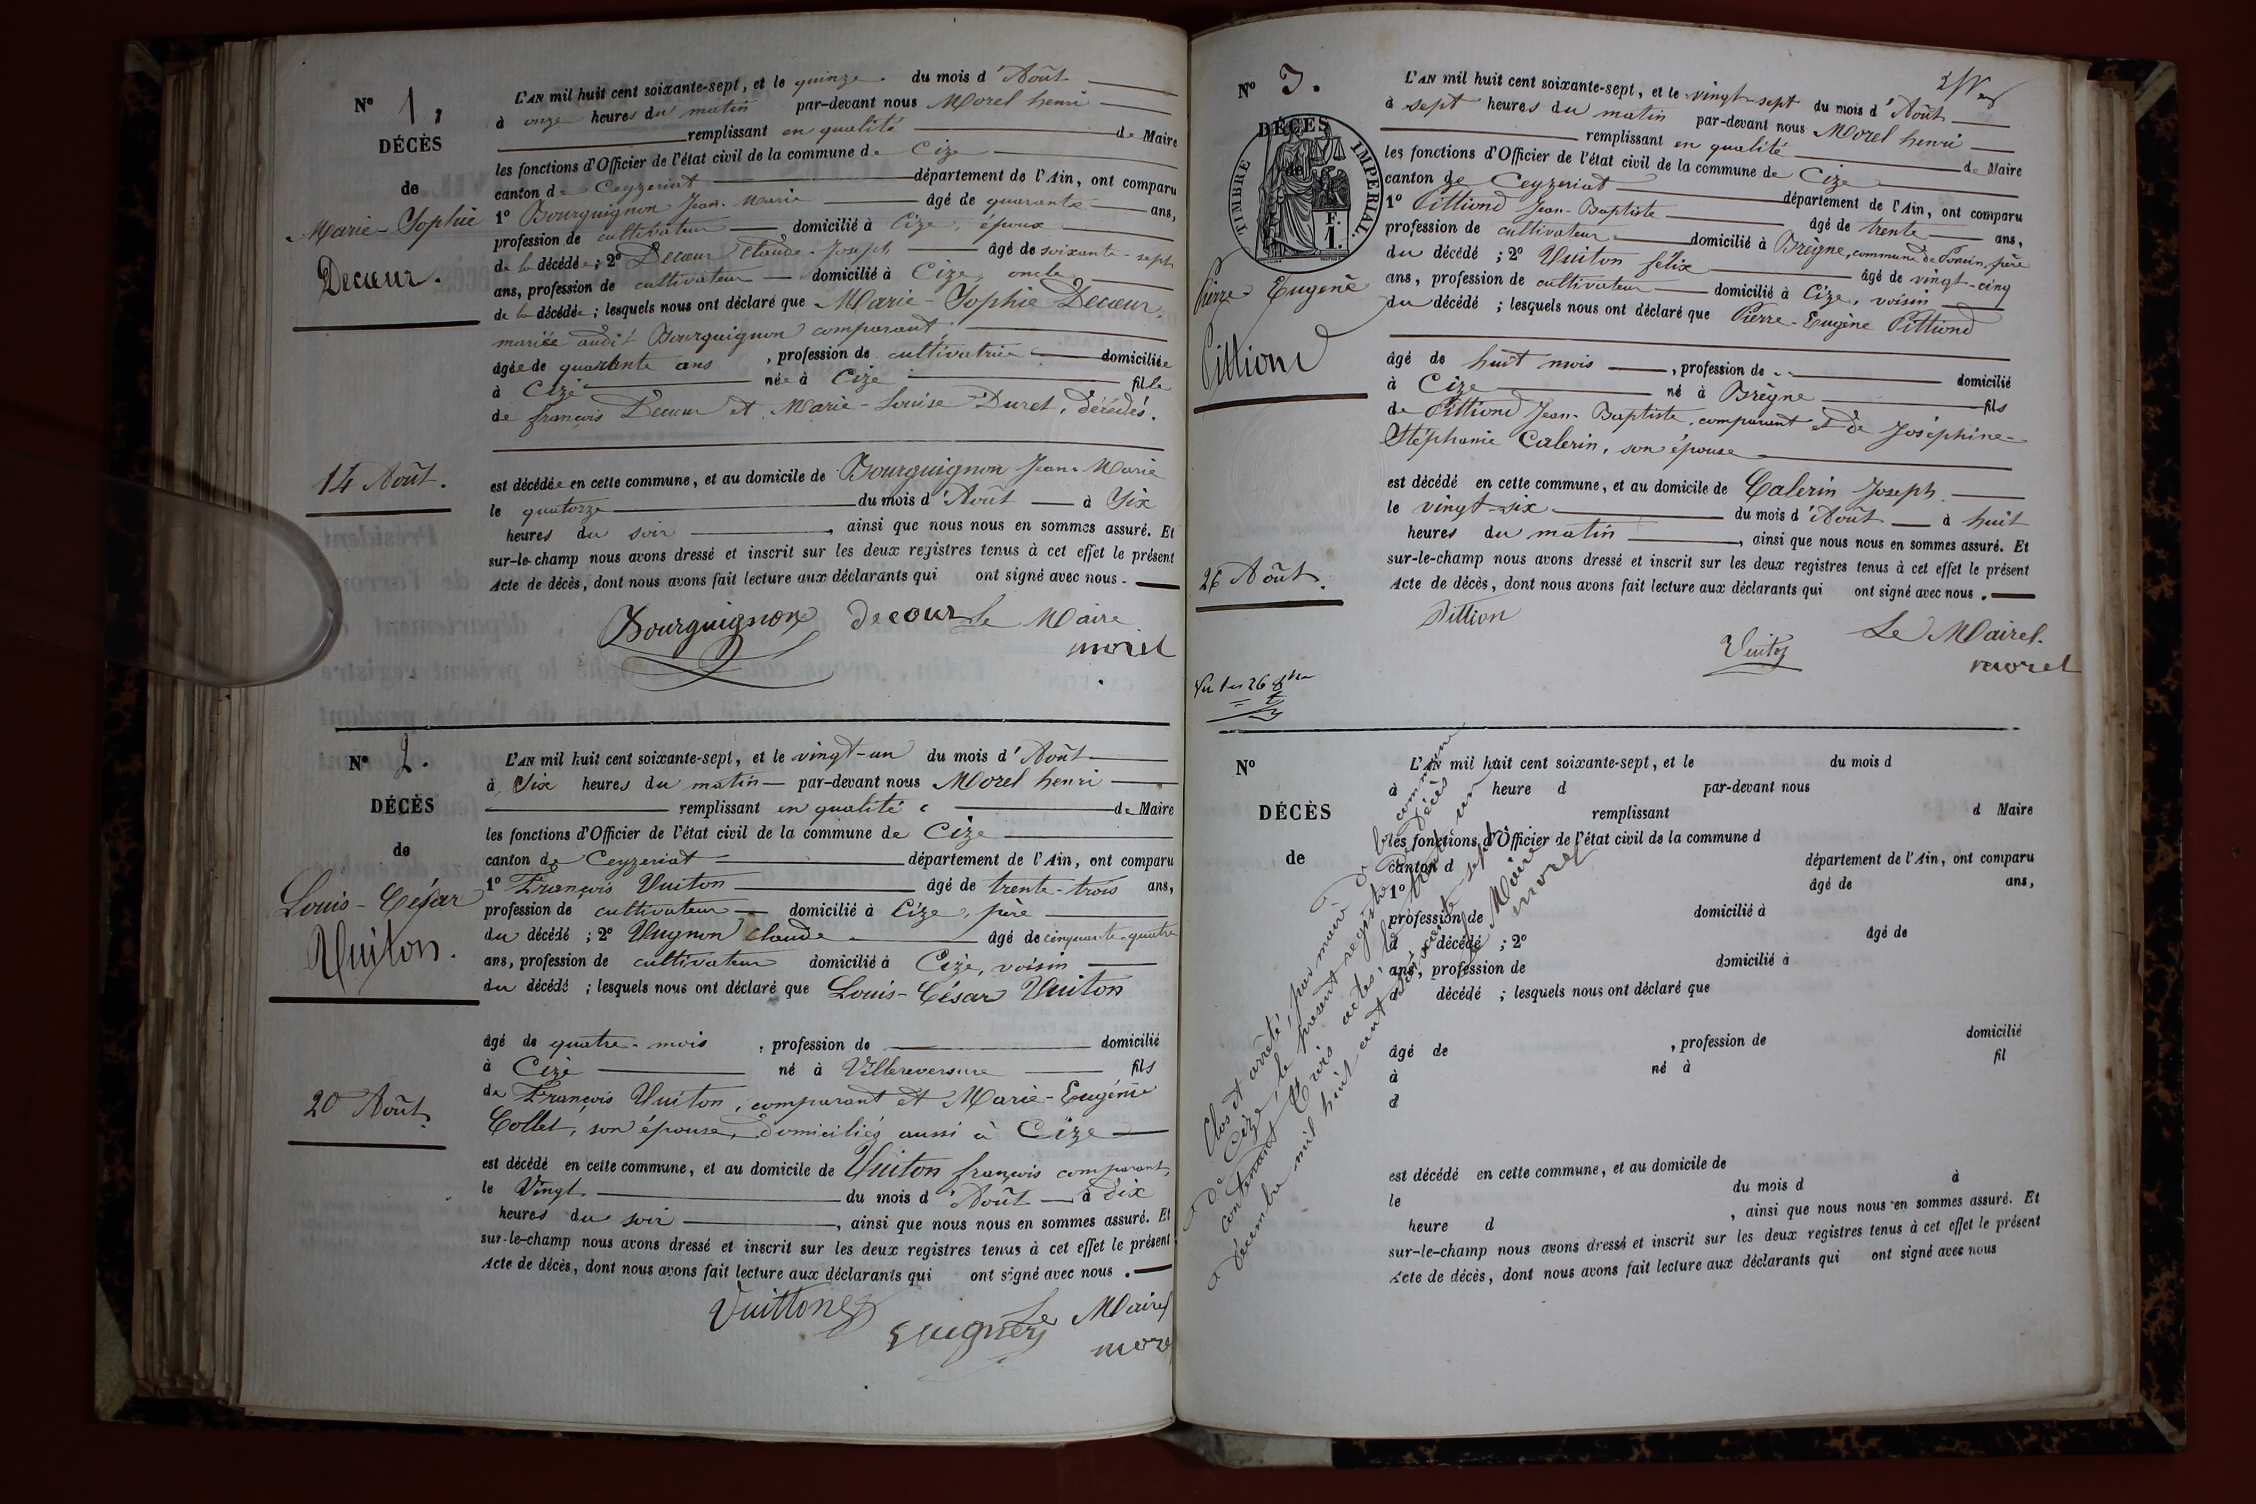 N° 1,
DÉCÈS
de
Marie-Sophie
Decœur.
14 Août.
L'AN mil huit cent soixante-sept, et le quinze du mois d'Août
à onze heures du matin par-devant nous Morel henri
remplissant en qualité de Maire
les fonctions d'Officier de l'état civil de la commune de Cize
canton de Ceyzeriat département de l'Ain, ont comparu
1° Bourguignon Jean-Marie âgé de quarante ans,
profession de cultivateur domicilié à Cize, époux
de la décédée; 2° Decœur Claude-Joseph âgé de soixante-sept
ans, profession de cultivateur domicilié à Cize, oncle
de la décédée; lesquels nous ont déclaré que Marie-Sophie Decœur,
mariée audit Bourguignon comparant,
âgée de quarante ans, profession de cultivatrice domiciliée
à Cize née à Cize fille
de françois Decœur et Marie-Louise Duret, décédés.
est décédée en cette commune, et au domicile de Bourguignon Jean-Marie
le quatorze du mois d'Août à Six
heures du soir, ainsi que nous nous en sommes assuré. Et
sur-le-champ nous avons dressé et inscrit sur les deux registres tenus à cet effet le présent
Acte de décès, dont nous avons fait lecture aux déclarants qui ont signé avec nous.
Bourguignon decour Le Maire
morel
N° 2.
DÉCÈS
de
Louis-César
Vuiton.
20 Août.
L'AN mil huit cent soixante-sept, et le vingt-un du mois d'Août
à Six heures du matin par-devant nous Morel henri
remplissant en qualité de Maire
les fonctions d'Officier de l'état civil de la commune de Cize
canton de Ceyzeriat département de l'Ain, ont comparu
1° François Vuiton âgé de trente-trois ans,
profession de cultivateur domicilié à Cize, père
du décédé; 2° Vugnon Claude âgé de cinquante-quatre
ans, profession de cultivateur domicilié à Cize, voisin
du décédé; lesquels nous ont déclaré que Louis-César Vuiton
âgé de quatre-mois, profession de domicilié
à Cize né à Villereversure fils
de François Vuiton, comparant et Marie-Eugénie
Collet, son épouse, domiciliés aussi à Cize
est décédé en cette commune, et au domicile de Vuiton françois comparant,
le Vingt du mois d'Août à dix
heures du soir, ainsi que nous nous en sommes assuré. Et
sur-le-champ nous avons dressé et inscrit sur les deux registres tenus à cet effet le présent
Acte de décès, dont nous avons fait lecture aux déclarants qui ont signé avec nous.
Vuitton
Le Maire
morel
N° 3.
DÉCÈS
de
TIMBRE IMPERIAL.
F.
1.
Pierre Eugène
Pittiond
26 Août.
L'AN mil huit cent soixante-sept, et le vingt sept du mois d'Août
à sept heures du matin par-devant nous Morel henri
remplissant en qualité de Maire
les fonctions d'Officier de l'état civil de la commune de Cize
canton de Ceyzeriat département de l'Ain, ont comparu
1° Pittiond Jean-Baptiste âgé de trente ans,
profession de cultivateur domicilié à Brègne, commune de Poncin, père
du décédé; 2° Vuiton félix âgé de vingt-cinq
ans, profession de cultivateur domicilié à Cize, voisin
du décédé; lesquels nous ont déclaré que Pierre-Eugène Pittiond
âgé de huit mois, profession de domicilié
à Cize né à Brègne fils
de Pittiond Jean-Baptiste, comparant et de Joséphine-
Stéphanie Calerin, son épouse
est décédé en cette commune, et au domicile de Calerin Joseph
le vingt-six du mois d'Août à huit
heures du matin, ainsi que nous nous en sommes assuré. Et
sur-le-champ nous avons dressé et inscrit sur les deux registres tenus à cet effet le présent
Acte de décès, dont nous avons fait lecture aux déclarants qui ont signé avec nous.
Pittion
Vuiton
Le Maire.
morel
N°
DÉCÈS
de
L'AN mil huit cent soixante-sept, et le du mois d
à heure d par-devant nous
remplissant d Maire
les fonctions d'Officier de l'état civil de la commune d
canton d département de l'Ain, ont comparu
1° âgé de ans,
profession de domicilié à
d décédé; 2° âgé de
ans, profession de domicilié à
d décédé; lesquels nous ont déclaré que
âgé de, profession de domicilié
à né à fil
d
est décédé en cette commune, et au domicile de
le du mois d à
heure d, ainsi que nous nous en sommes assuré. Et
sur-le-champ nous avons dressé et inscrit sur les deux registres tenus à cet effet le présent
Acte de décès, dont nous avons fait lecture aux déclarants qui ont signé avec nous
Clos et arrêté, par nous maire de la commune
de Cize, le présent registre de décès
contenant trois actes, le trente un
décembre mil huit cent soixante-sept
Le Maire
morel